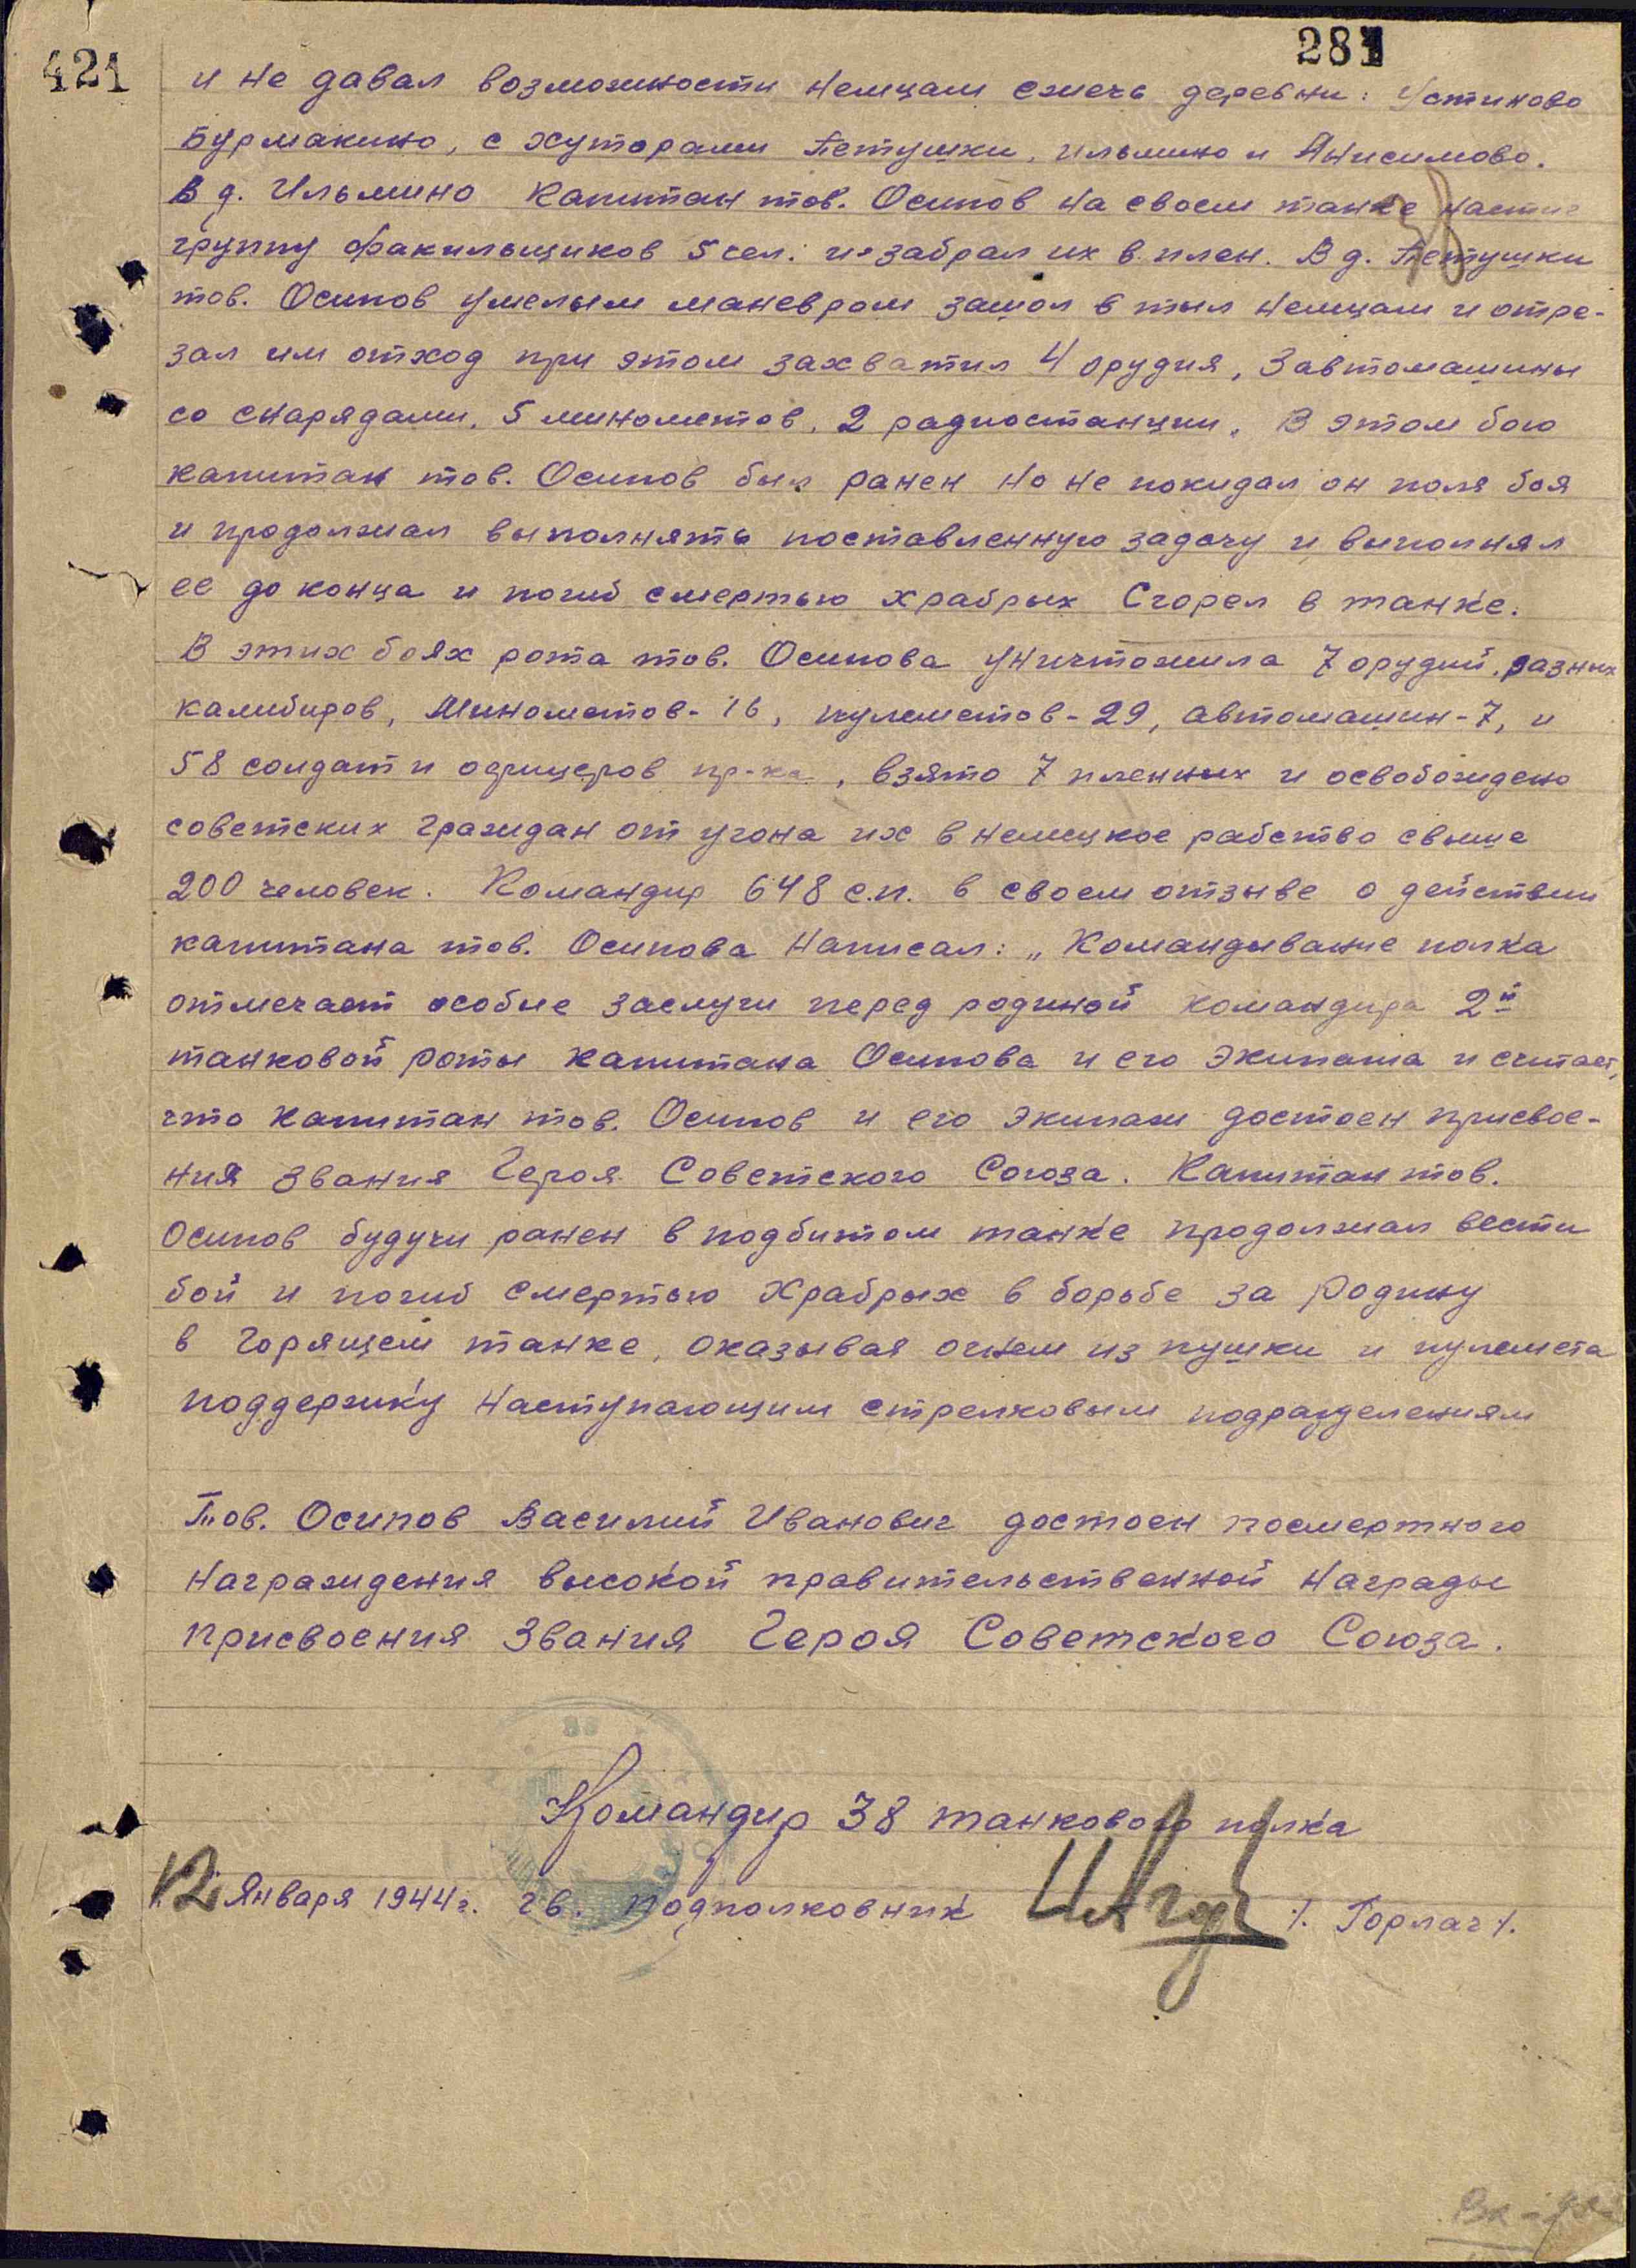 421
281
и не давал возможности немцам сжечь деревни: Устиново
Бурмакино, с хуторами Петушки, Ильмино и Анисимово.
В д. Ильмино капитан тов. Осипов на своем танке настиг
группу факильщиков 5 чел. и забрал их в плен. В д. Петушки
тов. Осипов умелым маневром зашол в тыл немцам и отре-
зал им отход при этом захватил 4 орудия, 3 автомашины
со снарядами, 5 минометов, 2 радиостанции. В этом бою
капитан тов. Осипов был ранен но не покидал он поля боя
и продолжал выполнять поставленную задачу и выполнял
ее до конца и погиб смертью храбрых Сгорел в танке.
В этих боях рота тов. Осипова уничтожила 7 орудий, разных
калибиров, Минометов-16, пулеметов-29, автомашин-7, и
58 солдат и офицеров пр-ка, взято 7 пленных и освобождено
советских граждан от угона их в немецкое рабство свыше
200 человек. Командир 648 с.п. в своем отзыве о действии
капитана тов. Осипова написал: „Командывание полка
отмечает особые заслуги перед родиной командира 2й
танковой роты капитана Осипова и его экипажа и считает,
что капитан тов. Осипов и его экипаж достоен присвое-
ния звания Героя Советского Союза. Капитан тов.
Осипов будучи ранен в подбитом танке продолжал вести
бой и погиб смертью храбрых в борьбе за Родину
в горящем танке, оказывая огнем из пушки и пулемета
поддержку наступающим стрелковым подразделениям
Тов. Осипов Василий Иванович достоен посмертного
награждения высокой правительственной награды
присвоения звания Героя Советского Союза.
Командир 38 танкового полка
12 Января 1944г. гв. подполковник /. Горлач /.